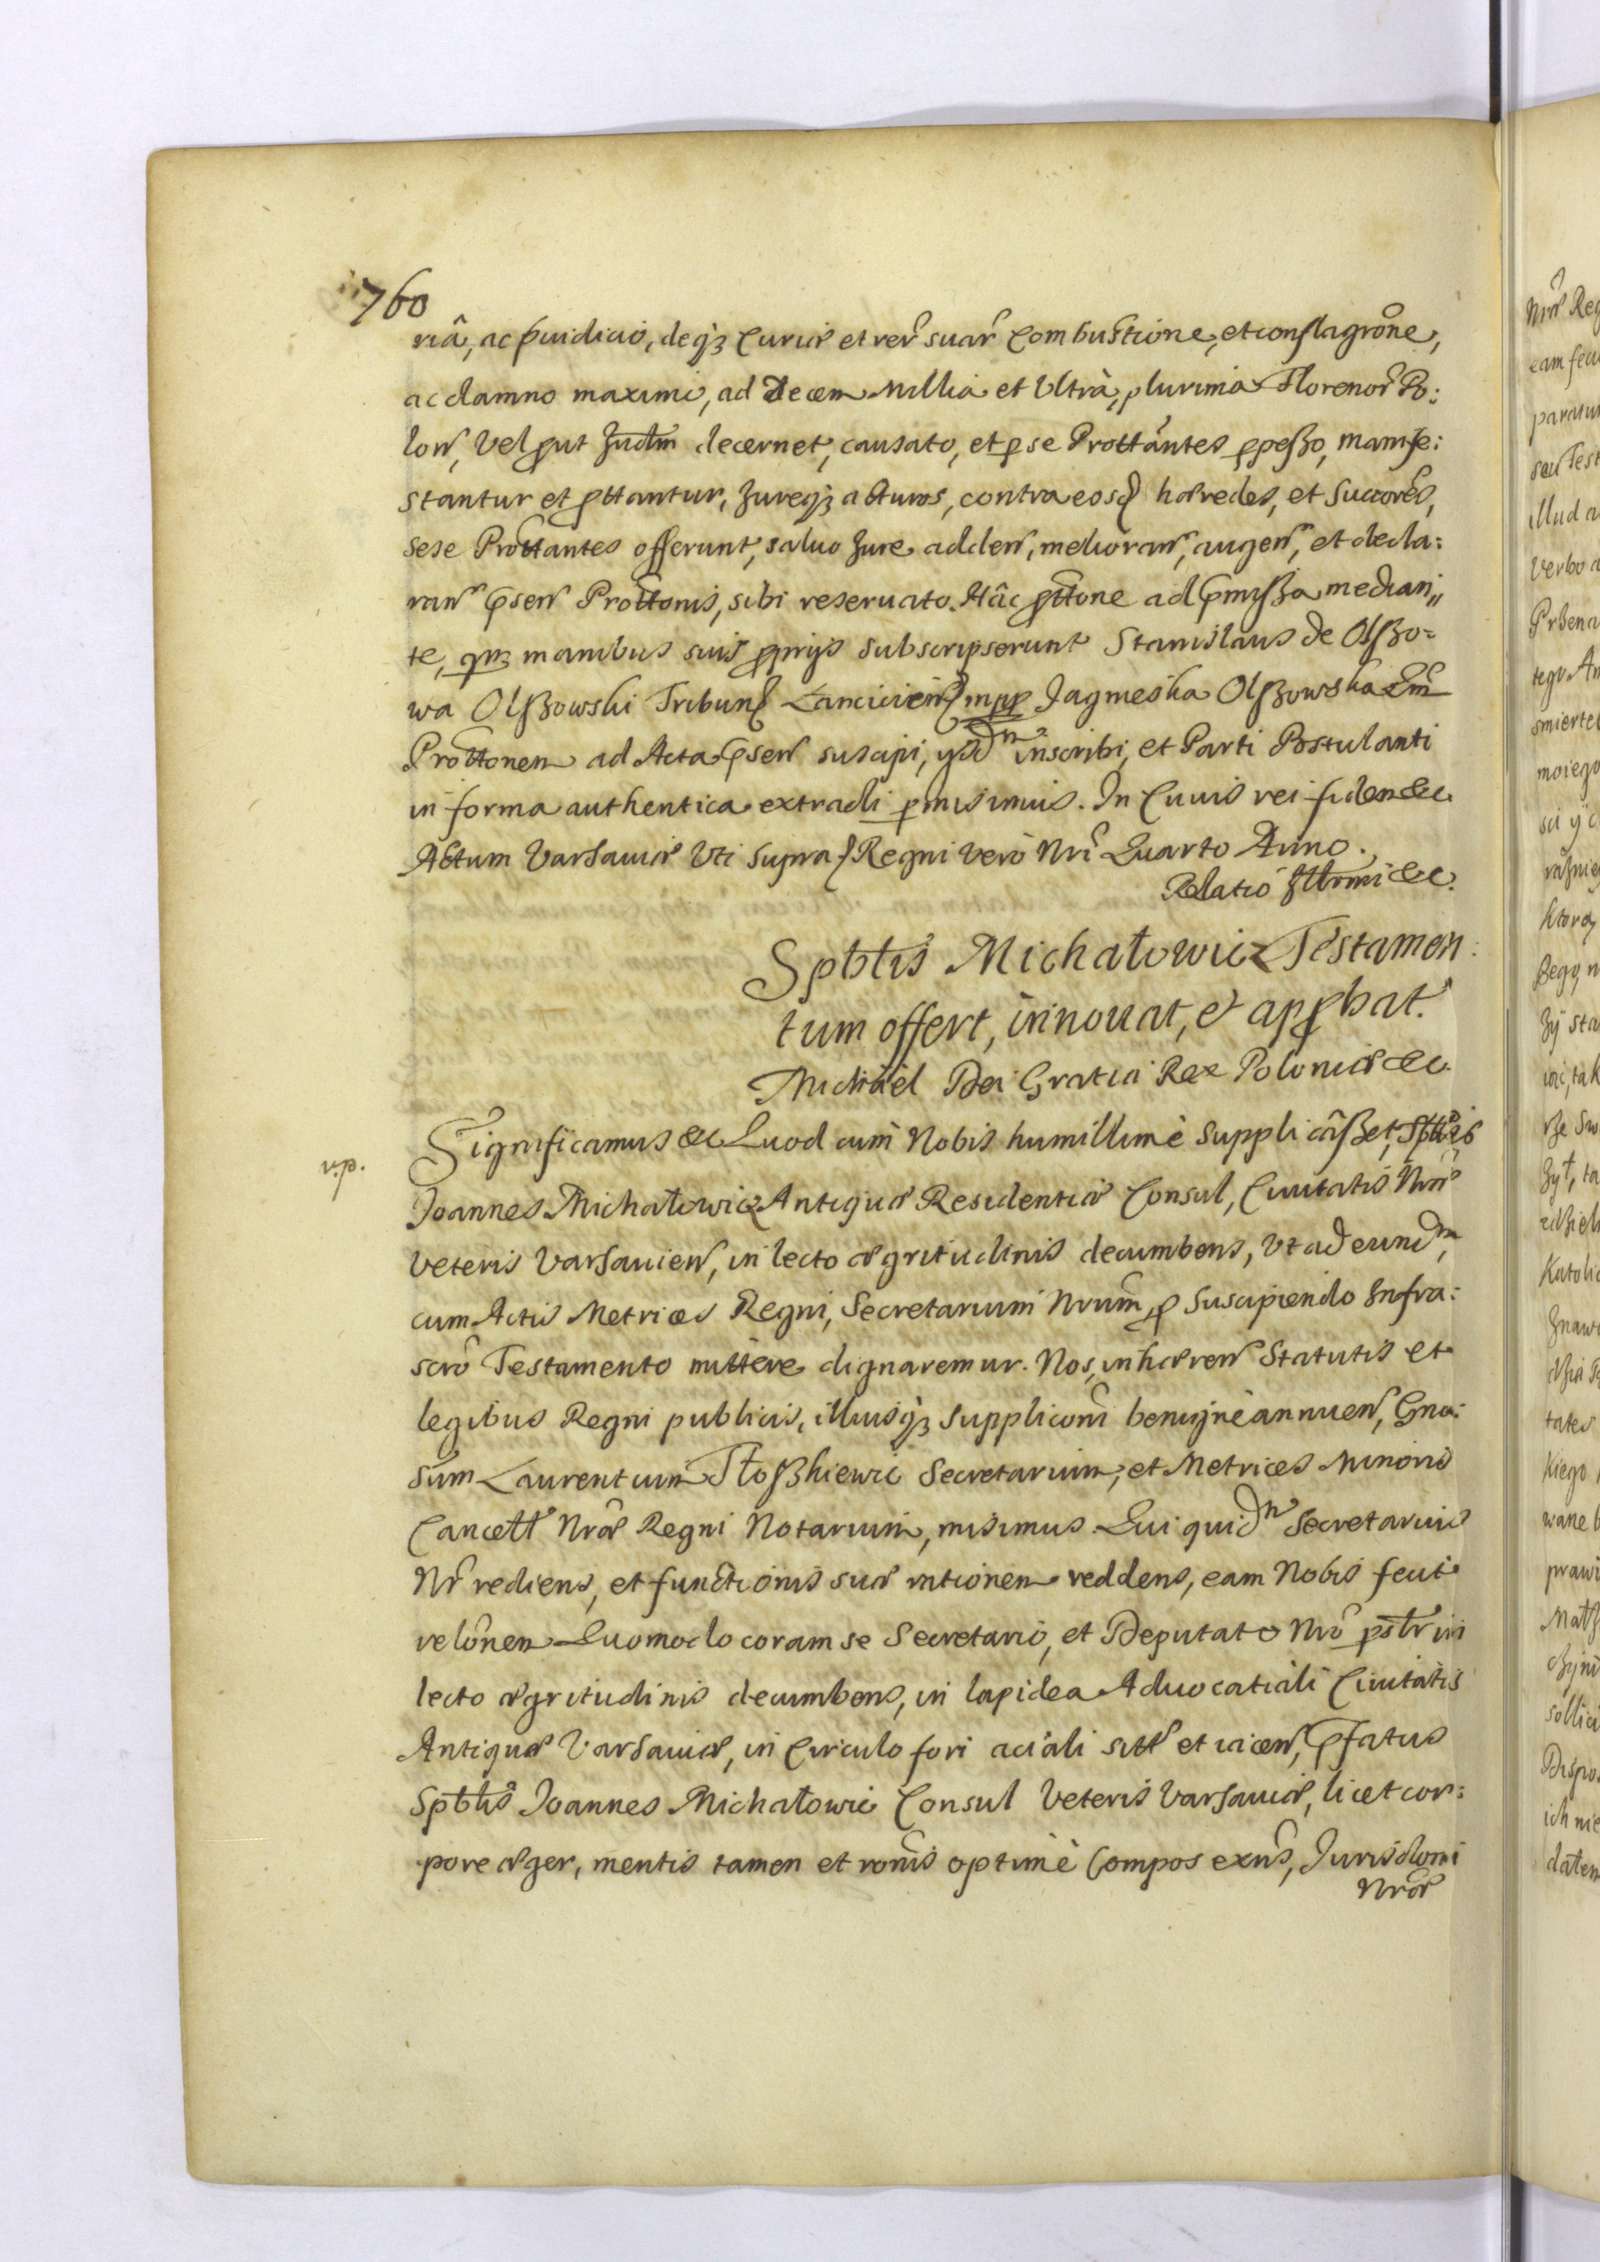 760
riâ, ac pṙiudicio, deq₃ Curiæ et reȓ suaȓ Combustione, et conflagrône,
ac damno maximo, ad Decem Millia et Ultrà, plurima Florenoȓ Po:
loñ, Vel ꝓut Judm̃ decernet, causato, et ꝑ se Prottântes ꝑpeßo, manife:
stantur et ꝓttantur, Jureq₃ acturos, contra eosq̃ hæredes, et Succorês,
sese Prottântes offerunt, saluo Jure addeñ, melioranñ, augeñ, et decla:
rañ p̃señ Prottonis, sibi reseruato. Hâc ꝓttône ad p̃mißa median
te, qm̃ manibus suis ꝓprijs subscripserunt Stanislaus de Olßo=
wa Olßowski Tribunȝ Lanciciensȝ mpp Jagnieska Olßowska Qm̃
Prottonem ad Acta p̃señ suscipi, ysdm̃ inscribi, et Parti Postulanti
in forma authentica extradi ꝑmisimus. In Cuius rei fidem &c.
Actum Varsauiæ Uti supra Regni verò Nri Quarto Anno.
Relatio Illrmi &c.
Spbtlis Michałowicz Testamen:
tum offert, innouat, et apꝓbat.
Michäel Dei Gratia Rex Poloniæ &c.
Significamus &c Quod cum Nobis humillimè Supplicâßet, Spttlis
Joannes Michałowicz Antiquæ Residentiæ Consul, Ciuitatis Nræ
veteris Varsauieñ, in lecto ægritudinis decumbens, Ut ad eundm,
cum Actis Metrices Regni, Secretarium Nrum, ꝓ Suscipiendo Infra:
scrô Testamento mittere dignaremur. Nos, inhæreñ Statutis et
legibus Regni publicis, illiusq₃ suppliconi benignè annueñ, Gno:
sum Laurentium Tłoßkiewic Secretarium, et Metrices Minoris
Cancell Nræ Regni Notarium, misimus. Qui quidm Secretarius
Nr rediens, et functionis suæ rationem reddens, eam Nobis fecit
relônem Quomodo coram se Secretario, et Deputato Nro psltr in
lecto ægritudinis decumbens, in lapidea Aduocatiali Ciuitatis
Antiquæ Varsauiæ, in Circulo fori aciali sitt et iaceñ, p̃fatus
Spbtlis Joannes Michałowic Consul Veteris Varsauiæ, licet cor:
pore æger, mentis tamen et ronîs optimè Compos exns, Jurisdloni
Nræ